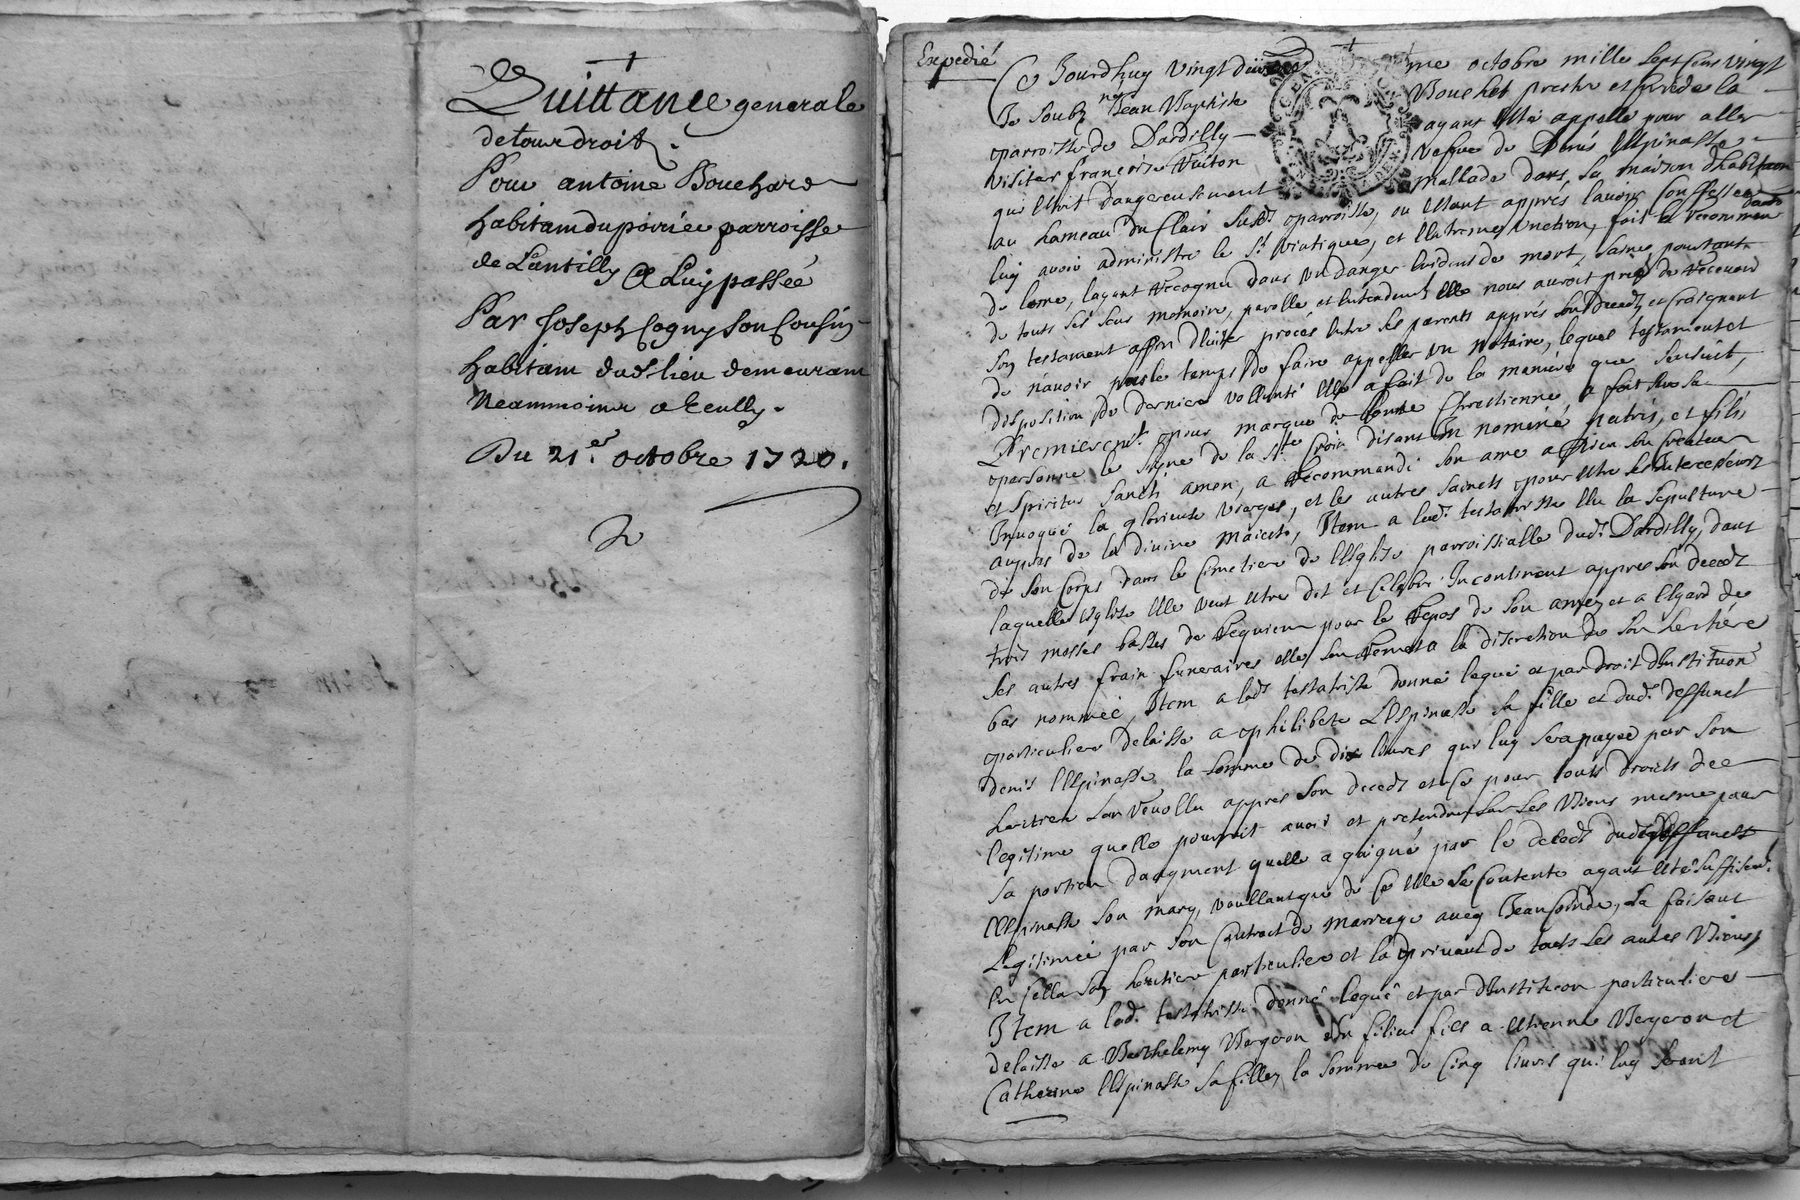 Quittance generale
de tous droits.
Pour antoine Bouchard
habitan du poirier parroisse
de Lantilly A Luy passée
Par Joseph Cogny son Cousin
habitam dud. lieu demeurant
Neammoins a Ecully.
Du 21.er octobre 1720.
Expedié
Ce Jourdhuy vingt me octobre mille sept cens vingt
Je soubz.né Jean Baptiste Bouchet prestre et Curé de la
parroisse de Dardilly ayant esté appellé pour aller
visiter françoise vefve de Denis LEspinasse
qui estoit dangereusement mallade dans sa maison d'habitaon
au hameau du Clair susd. parroisse, ou estant apprés lavoir Conffessée
luy avoir administré le St. Viatique, et lextreme onction, fait la recomman
daon
de lame, layant recognu dans un danger evident de mort, saine pourtant
de touts ses sens memoire, parolle et entendem.t elle nous auroit prié de recevoir
son testament affin deviter procés entre ses parents apprés son deceds, et Craignant
de n'avoir pas le temps de faire appeller un Notaire, lequel testament et
disposition de derniere vollonté elle a fait de la maniere que sensuit,
Premierem.t pour marque de bonne Chrestienne, a fait sur sa
personne le signe de la Ste Croix disant In nominé patris, et filii
et spiritus sancti amen, a recommandé son ame a Dieu son Createur
Invoqué la glorieuse vierge, et les autres saincts pour etre ses intercesseurs
aupres de la divine Majesté, Item a lad. testatrisse elu la sepulture
de son Corps dans le Cimetiere de lEglise parroissialle dud. Dardilly, dans
laquelle Eglise elle veut etre dit et Celebré Incontinent appres son deceds
trois messes basses de Requiem pour le repos de son ame, et a lEgard de
ses autres frais funeraires elle sen remet a la discretion de son heritiere
bas nommée, Item a lad. testatrisse donné legué et par droit dInstitutïon
particuliere delaisse a philiberte LEspinasse sa fille et dud. deffunct
denis LEspinasse la somme de dix livres qui luy sera payée par son
heritier appres son deceds et Ce pour touts droits de
legitime quelle pourroit avoir et pretendre sur ses Biens mesme pour
sa portion daugment quelle a gaigné par le deceds dud. deffunct
LEspinasse son mary, voullant que de Ce elle se Contente ayant esté suffisem.t
Legitimée par son Contract de Marriage avec Jean la faisant
en Jcella son heritiere particuliere et la privant de touts ses autres Biens,
Item a lad. testatrisse donné legué et par dInstitution particuliere
delaisse a Berthelemy Bergeron son filieu fils a Etienne Bergeron et
Catherine LEspinasse sa fille, la somme de Cinq livres qui luy seront